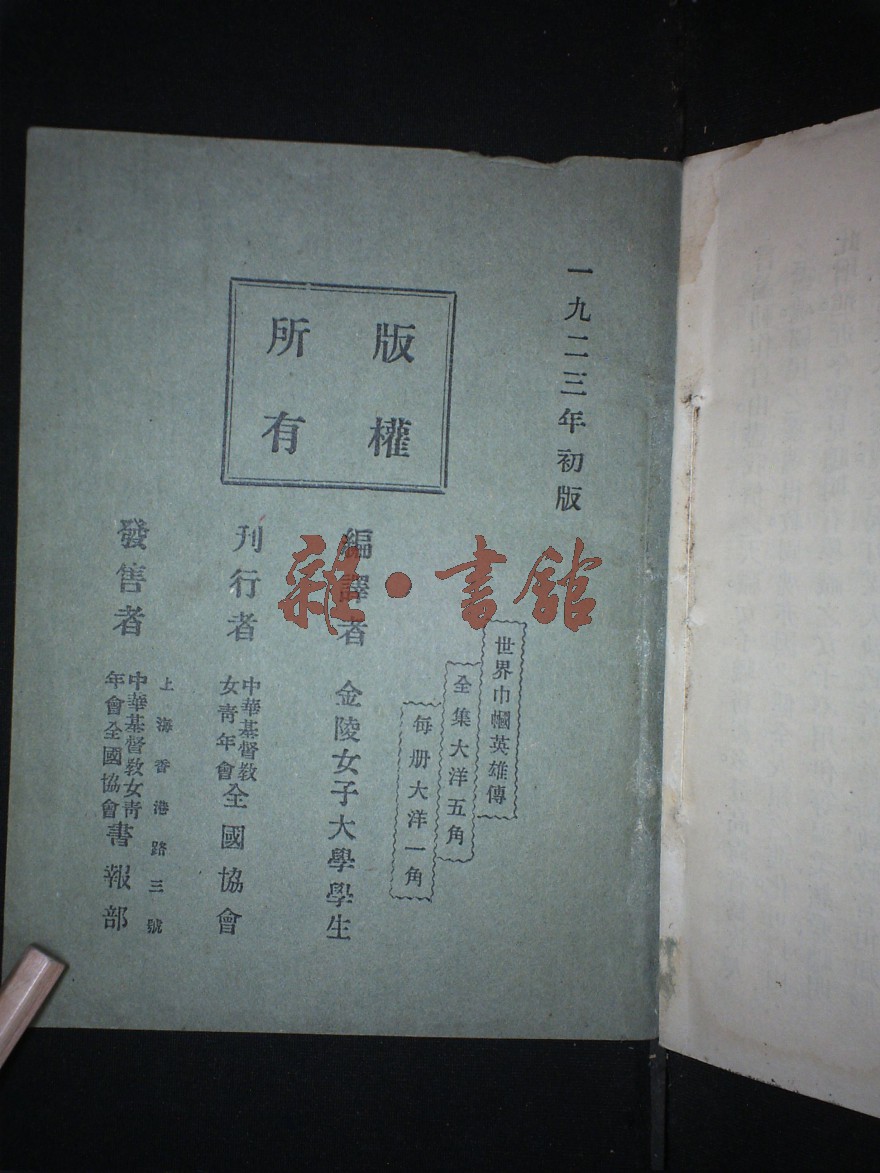 一九二三年初版
世界巾幗英雄傳
全集大洋五角
每册大洋一角
版權
所有
編譯者 金陵女子大學學生
刊行者 中華基督教女青年會全國協會
上海香港路三號
發售者 中華基督教女青年會全國協會書報部
雜·書館